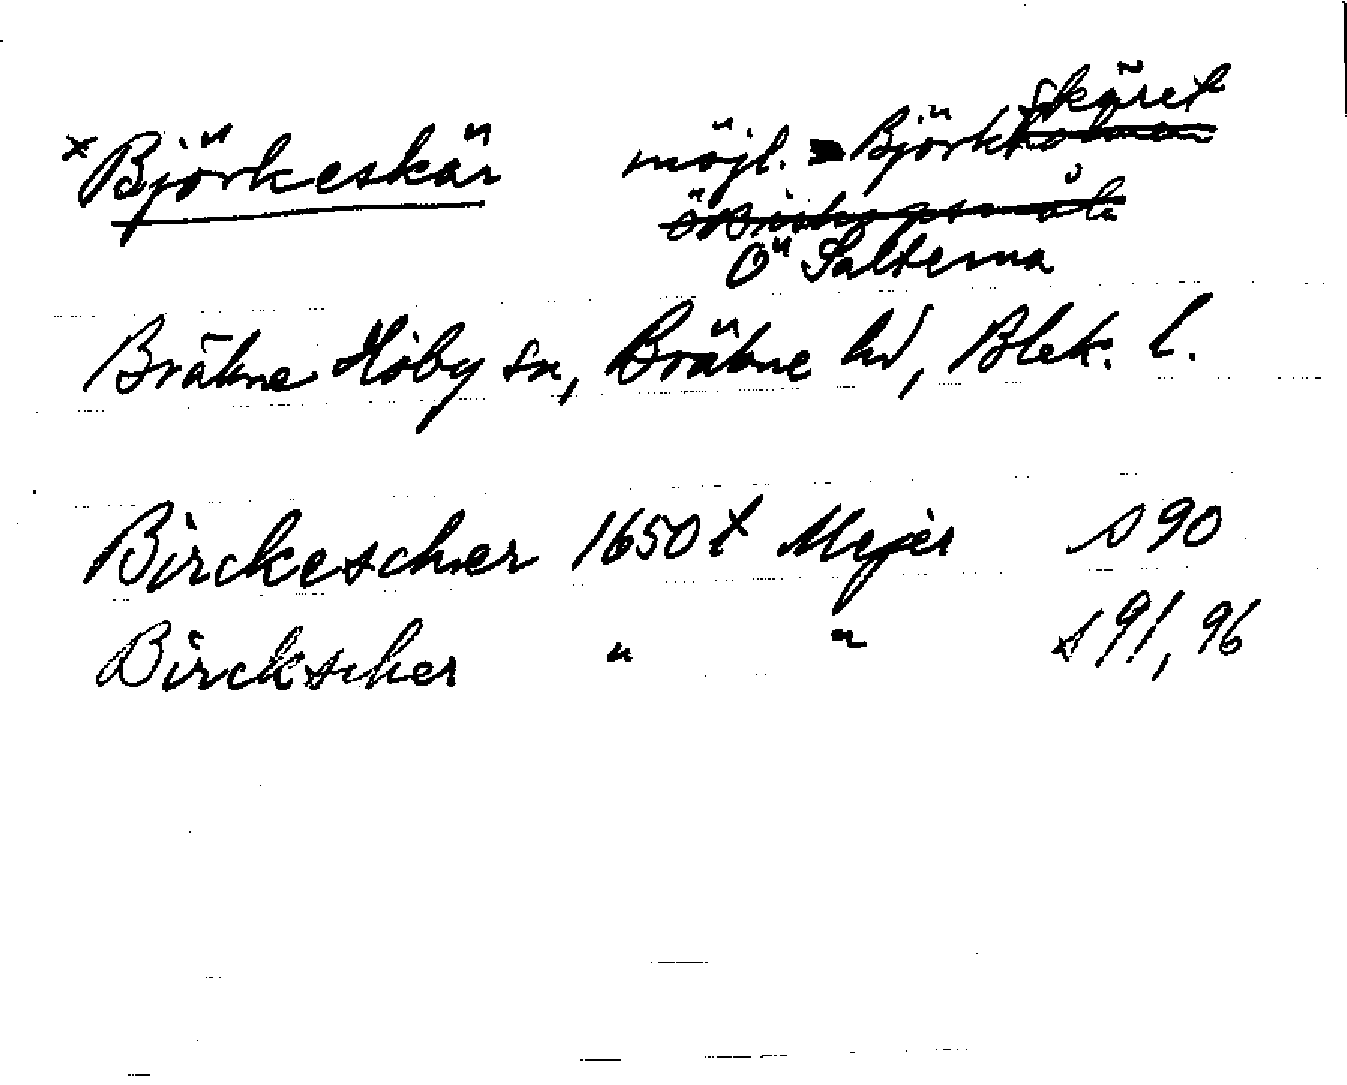 x Björkeskär möjl. = Björkskäret
Ö Salterna
Bräkne Hoby sn, Bräkne hd, Blek. l.
Birckescher 1650 t Mejer s 90
Birckscher " " s 91, 96